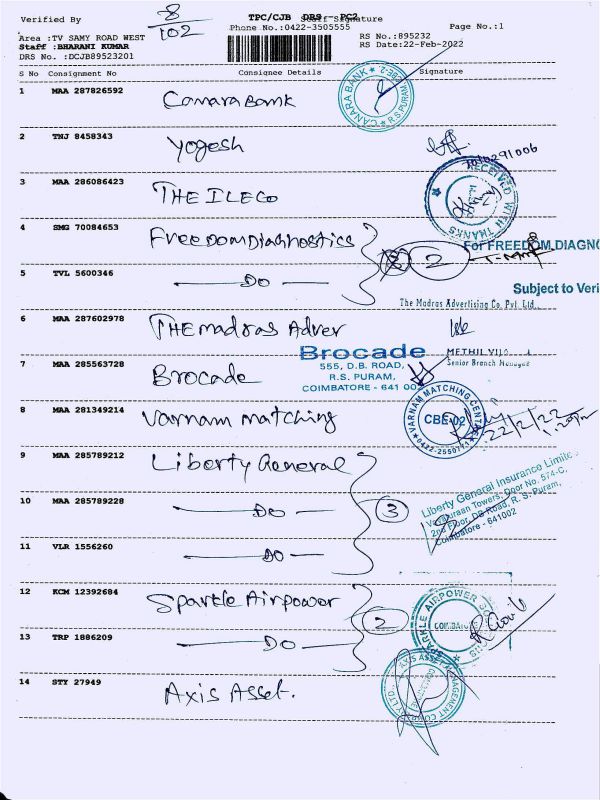 Verified By
8/102
TPC/CJB DRS - PC2
Staff Signature
Phone No.:0422-3505555
Page No.:1
Area :TV SAMY ROAD WEST
Staff :BHARANI KUMAR
DRS No. :DCJB89523201
RS No.:895232
RS Date:22-Feb-2022
S No Consignment No Consignee Details Signature
1 MAA 287826592 Canara Bank
CANARA BANK R.S PURAM
2 TNJ 8458343 Yogesh
3 MAA 286086423 THE ILECO
RECEIVED WITH THANKS
4 SMG 70084653 Freedom Diahnostics 2
For FREEDOM DIAGNO
5 TVL 5600346 — DO —
Subject to Veri
The Madras Advertising Co. Pvt. Ltd.
6 MAA 287602978 THE madras Adver
Senior Branch Manager
Brocade
555, D.B. ROAD,
R.S. PURAM,
COIMBATORE - 641 002
7 MAA 285563728 Brocade
8 MAA 281349214 Varnam matching
VARNAM MATCHING CENTRE
CBE-02
22/2/22
9 MAA 285789212 Liberty General
Liberty General Insurance Limited
Door No. 574-C,
2nd Floor, DB Road, R. S. Puram,
Coimbatore - 641002
10 MAA 285789228 — DO — 3
11 VLR 1556260 — DO —
12 KCM 12392684 Sparkle Airpower 2
SPARKLE AIRPOWER
COIMBATORE
13 TRP 1886209 — DO —
14 STY 27949 Axis Asset.
AXIS ASSET MANAGEMENT COMPANY LTD.